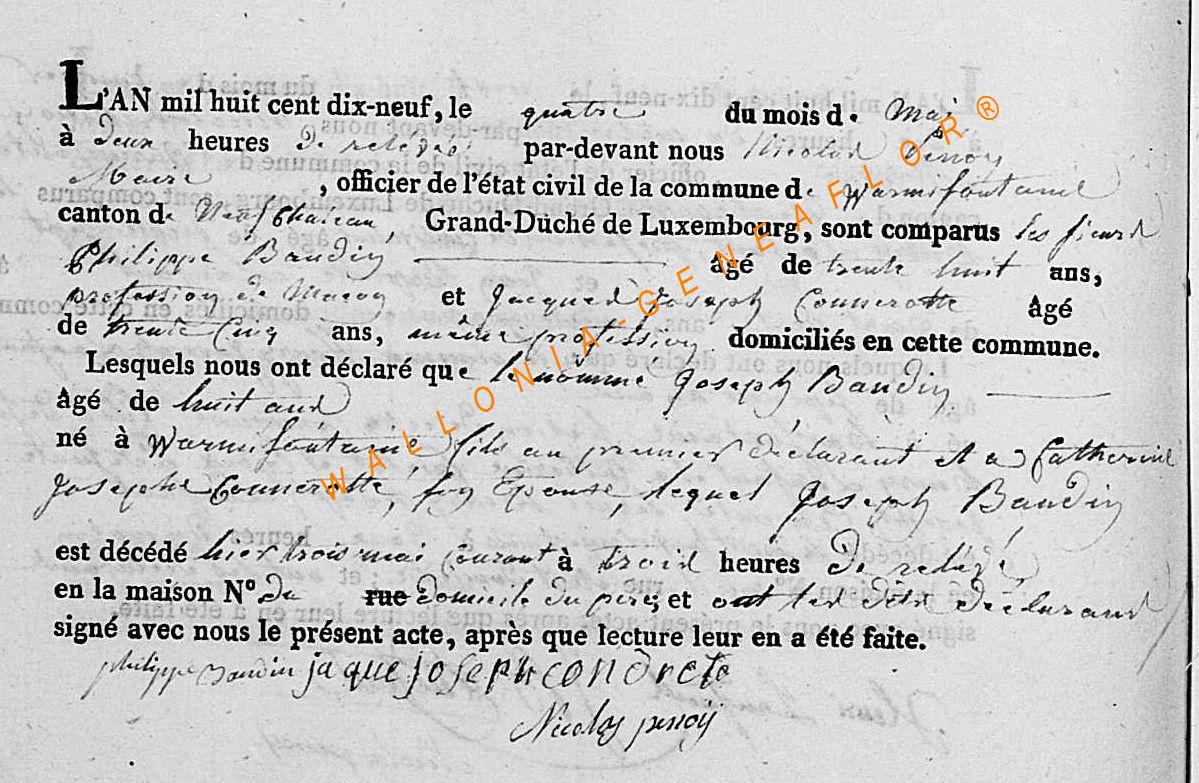 L'AN mil huit cent dix-neuf, le quatre du mois de Mai
à deux heures de relevée par-devant nous Nicolas
Maire, officier de l'état civil de la commune de Warmifontaine
canton de Neufchateau, Grand-Duché de Luxembourg, sont comparus les sieurs
Philippe Baudin âgé de trente huit ans,
profession de Macon et Jacques Joseph Connerotte âgé
de trente Cinq ans, même profession domiciliés en cette commune.
Lesquels nous ont déclaré que le nommé Joseph Baudin
âgé de huit ans
né à Warmifontaine fils au premier déclarant et a Catherine
Josephe Connerotte, son Epouse, lequel Joseph Baudin
est décédé hier trois mai Courant à trois heures De relevée,
en la maison N° du rue domicile du père; et ont les dits déclarans
signé avec nous le présent acte, après que lecture leur en a été faite.
philippe baudin jaque joseph condrete
Nicolas
WALLONIA-GENEAFLOR®